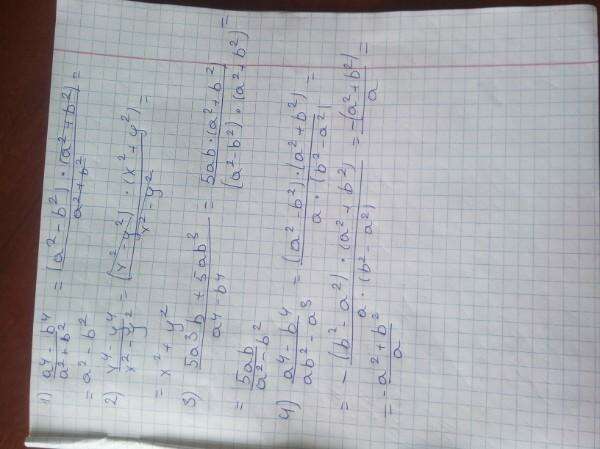 1) a⁴ - b⁴ / a² + b² = (a² - b²) · (a² + b²) / a² + b² =
= a² - b²
2) x⁴ - y⁴ / x² - y² = (x² - y²) · (x² + y²) / x² - y² =
= x² + y²
3) 5a³b + 5ab³ / a⁴ - b⁴ = 5ab · (a² + b²) / (a² - b²) · (a² + b²) =
= 5ab / a² - b²
4) a⁴ - b⁴ / ab² - a³ = (a² - b²) · (a² + b²) / a · (b² - a²) =
= - (b² - a²) · (a² + b²) / a · (b² - a²) = -(a² + b²) / a =
= - a² + b² / a